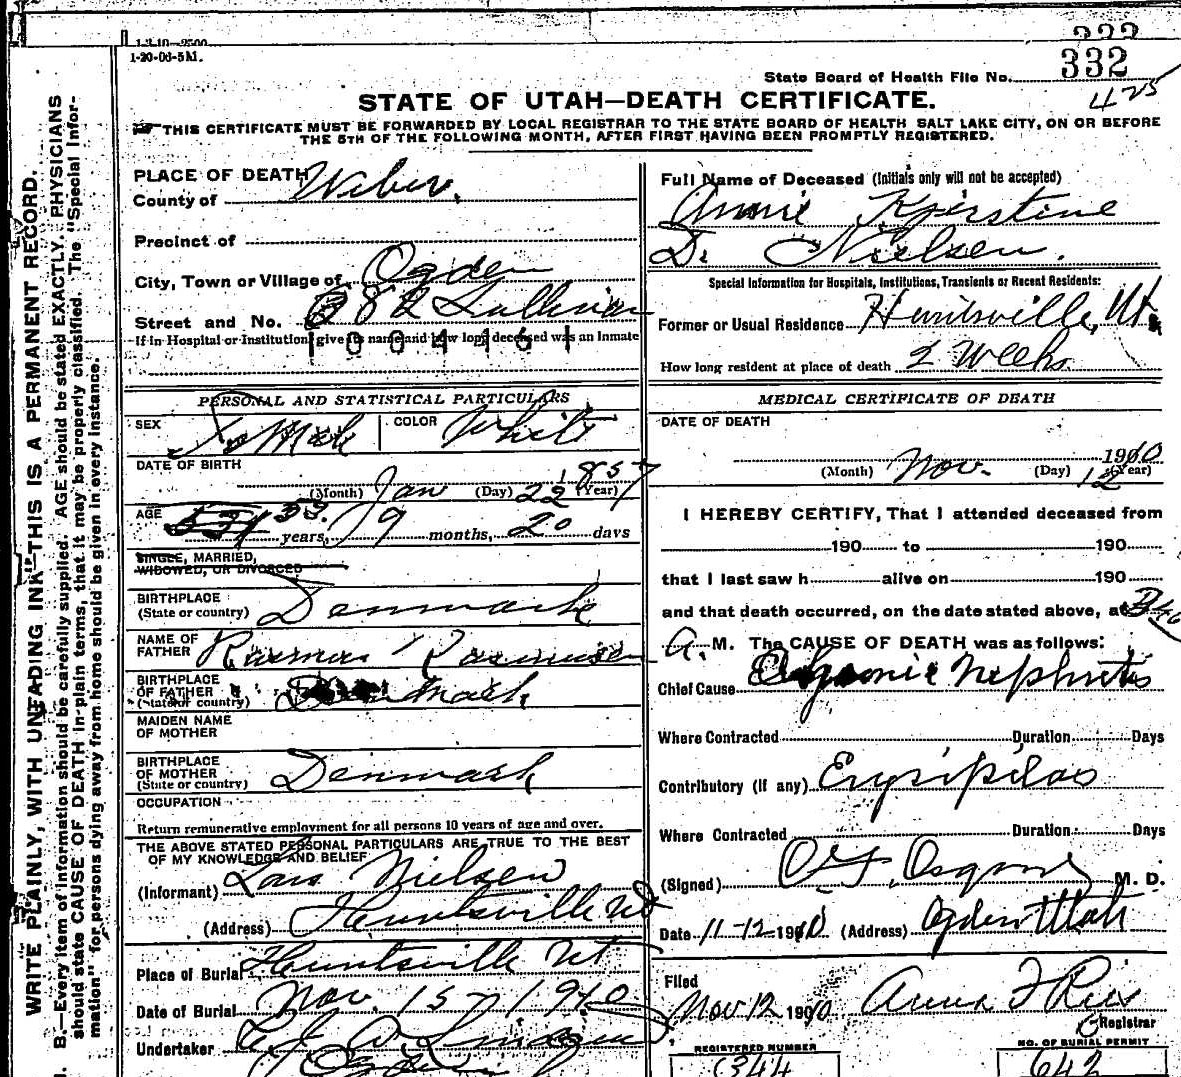 1-20-06-5M.
332
State Board of Health File No.
425
STATE OF UTAH—DEATH CERTIFICATE.
THIS CERTIFICATE MUST BE FORWARDED BY LOCAL REGISTRAR TO THE STATE BOARD OF HEALTH SALT LAKE CITY, ON OR BEFORE
THE 5TH OF THE FOLLOWING MONTH, AFTER FIRST HAVING BEEN PROMPTLY REGISTERED.
WRITE PLAINLY, WITH UNFADING INK—THIS IS A PERMANENT RECORD.
B.—Every item of information should be carefully supplied. AGE should be stated EXACTLY. PHYSICIANS
should state CAUSE OF DEATH in plain terms, that it may be properly classified. The "Special Infor-
mation" for persons dying away from home should be given in every instance.
PLACE OF DEATH
County of Weber.
Precinct of
City, Town or Village of Ogden
Street and No. 82 Sullivan
If in Hospital or Institution, give its name and how long deceased was an Inmate
PERSONAL AND STATISTICAL PARTICULARS
SEX Female COLOR White
DATE OF BIRTH
1857
(Month) Jan (Day) 22 (Year)
AGE 53 years, 9 months, 20 days
SINGLE, MARRIED,
WIDOWED, OR DIVORCED
BIRTHPLACE
(State or country) Denmark
NAME OF
FATHER Rasmus Rasmussen
BIRTHPLACE
OF FATHER
(State or country) Denmark
MAIDEN NAME
OF MOTHER
BIRTHPLACE
OF MOTHER
(State or country) Denmark
OCCUPATION
Return remunerative employment for all persons 10 years of age and over.
THE ABOVE STATED PERSONAL PARTICULARS ARE TRUE TO THE BEST
OF MY KNOWLEDGE AND BELIEF
(Informant) Lars Nielsen
(Address) Huntsville Ut
Place of Burial Huntsville Ut
Date of Burial Nov. 15 - 1910
Undertaker
Ogden
Full Name of Deceased (Initials only will not be accepted)
Annie Kjerstine
D. Nielsen.
Special Information for Hospitals, Institutions, Transients or Recent Residents:
Former or Usual Residence Huntsville, Ut.
How long resident at place of death 2 Weeks.
MEDICAL CERTIFICATE OF DEATH
DATE OF DEATH
1910
(Month) Nov. (Day) 12 (Year)
I HEREBY CERTIFY, That I attended deceased from
190 to 190
that I last saw h alive on 190
and that death occurred, on the date stated above, at 340
A. M. The CAUSE OF DEATH was as follows:
Chief Cause Chronic Nephritis
Where Contracted Duration Days
Contributory (if any) Erysipelas
Where Contracted Duration Days
(Signed) Osgood M. D.
Date 11-12-1910 (Address) Ogden Utah
Filed
Nov 12 1910 Anna F Ries
Registrar
REGISTERED NUMBER
344
NO. OF BURIAL PERMIT
642